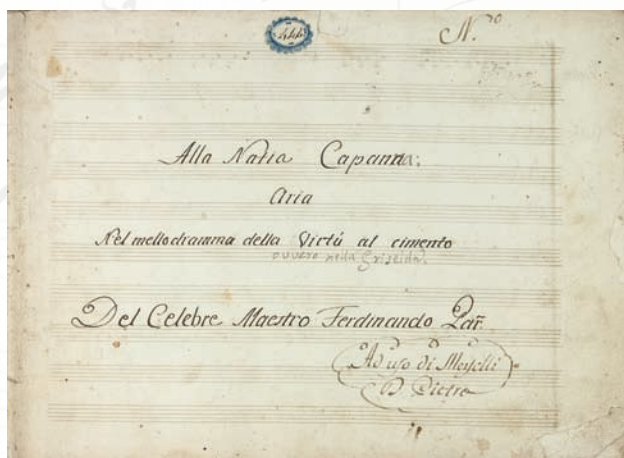 444
N.ro
Alla Natia Capanna.
Aria
Nel mellodramma della Virtù al cimento
ovvero nella Griselda.
Del Celebre Maestro Ferdinando Par
Ad uso di
D. Pietro